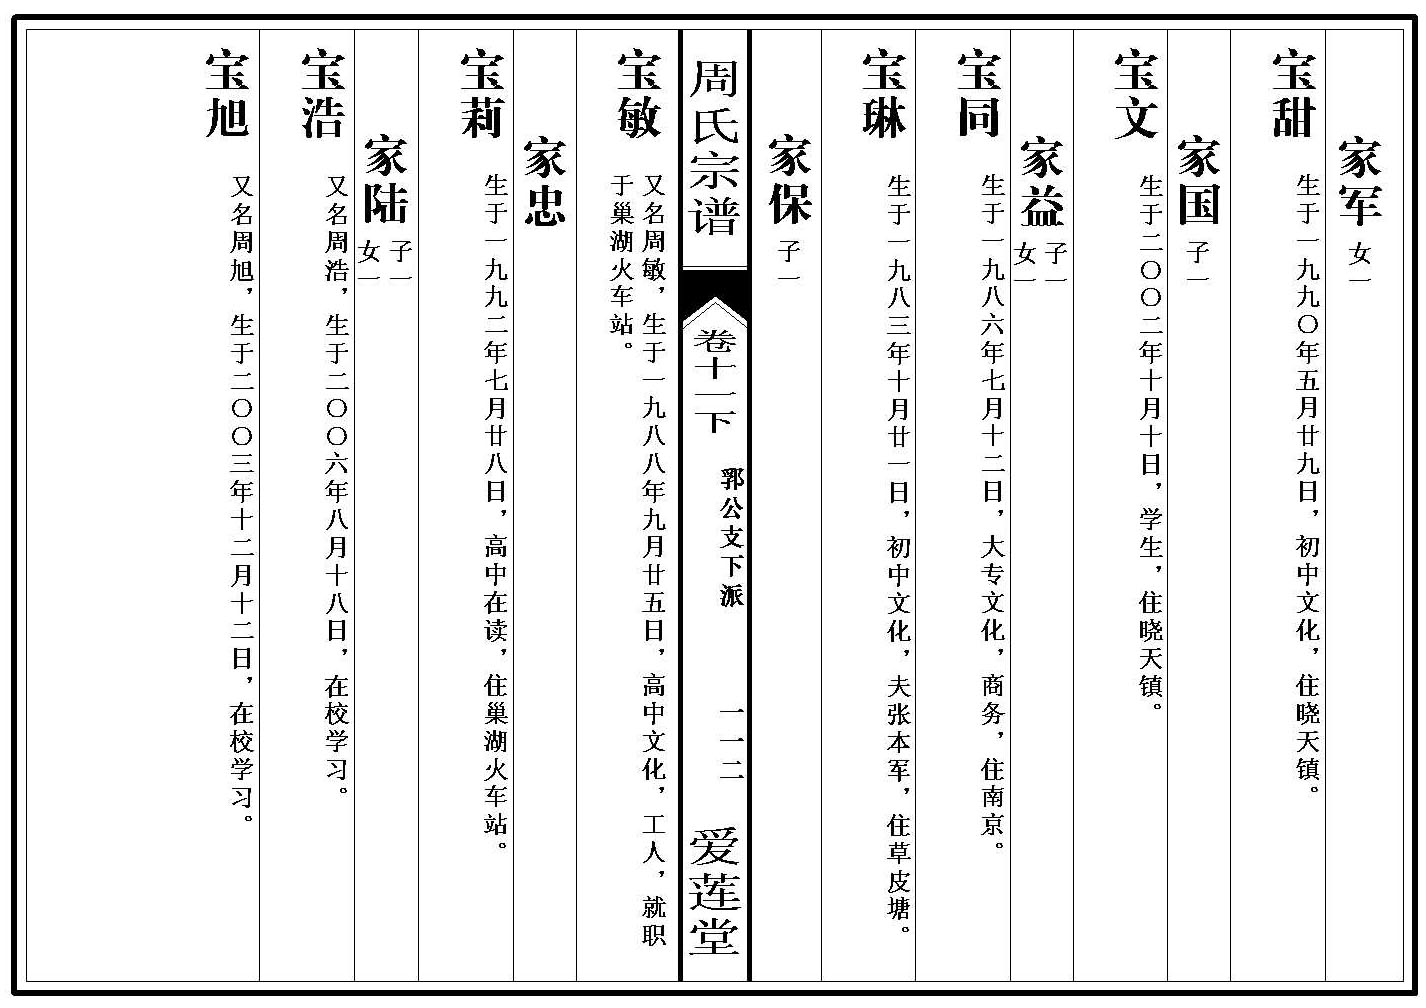 家军 女一
宝甜 生于一九九〇年五月廿九日，初中文化，住晓天镇。
家国 子一
宝文 生于二〇〇二年十月十日，学生，住晓天镇。
家益 子一 女一
宝同 生于一九八六年七月十二日，大专文化，商务，住南京。
宝琳 生于一九八三年十月廿一日，初中文化，夫张本军，住草皮塘。
家保 子一
周氏宗谱 卷十二下 郛公支下派 一一二 爱莲堂
宝敏 又名周敏，生于一九八八年九月廿五日，高中文化，工人，就职
于巢湖火车站。
家忠
宝莉 生于一九九二年七月廿八日，高中在读，住巢湖火车站。
家陆 子一 女一
宝浩 又名周浩，生于二〇〇六年八月十八日，在校学习。
宝旭 又名周旭，生于二〇〇三年十二月十二日，在校学习。